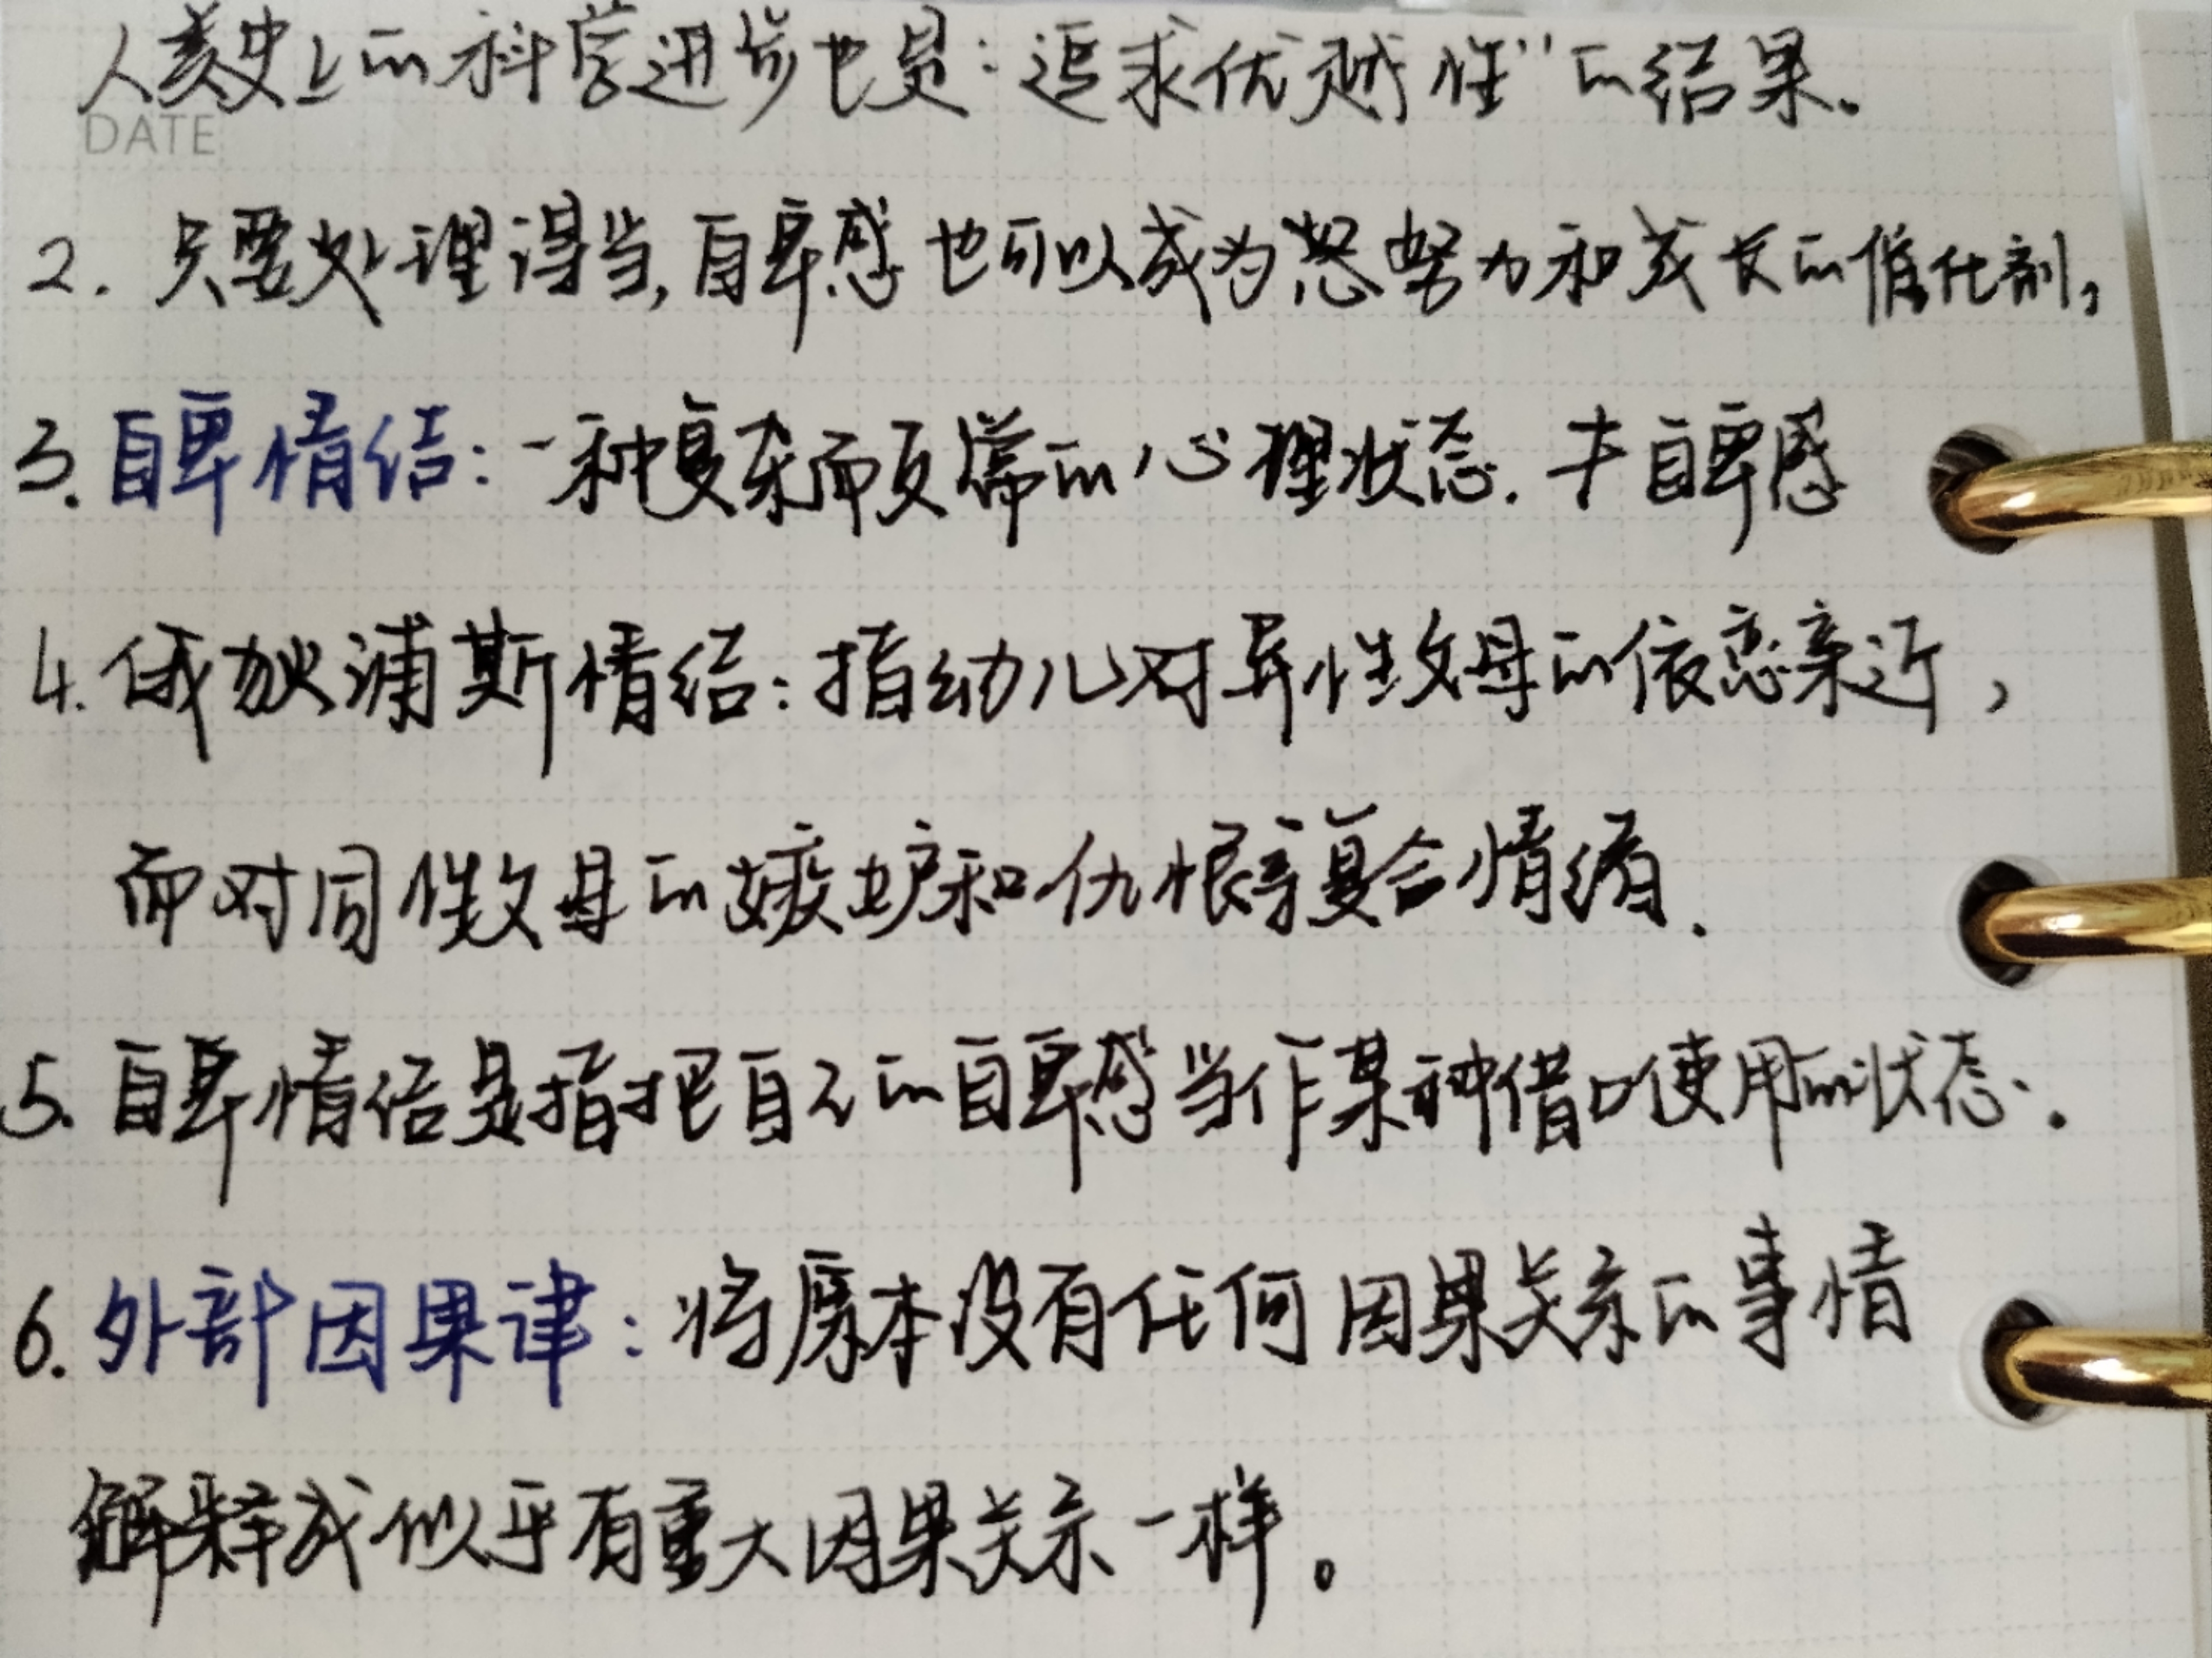 人类史上的科学进步也是:追求优越性"的结果。
DATE
2. 只要处理得当,自卑感也可以成为努力和成长的催化剂,
3. 自卑情结:一种复杂而反常的心理状态. 自卑感
4. 俄狄浦斯情结:指幼儿对异性父母的依恋亲近,
而对同性父母的嫉妒和仇恨等复合情绪.
5. 自卑情结是指把自己的自卑感当作某种借口使用的状态.
6. 外部因果律:将原本没有任何因果关系的事情
解释成似乎有重大因果关系一样。